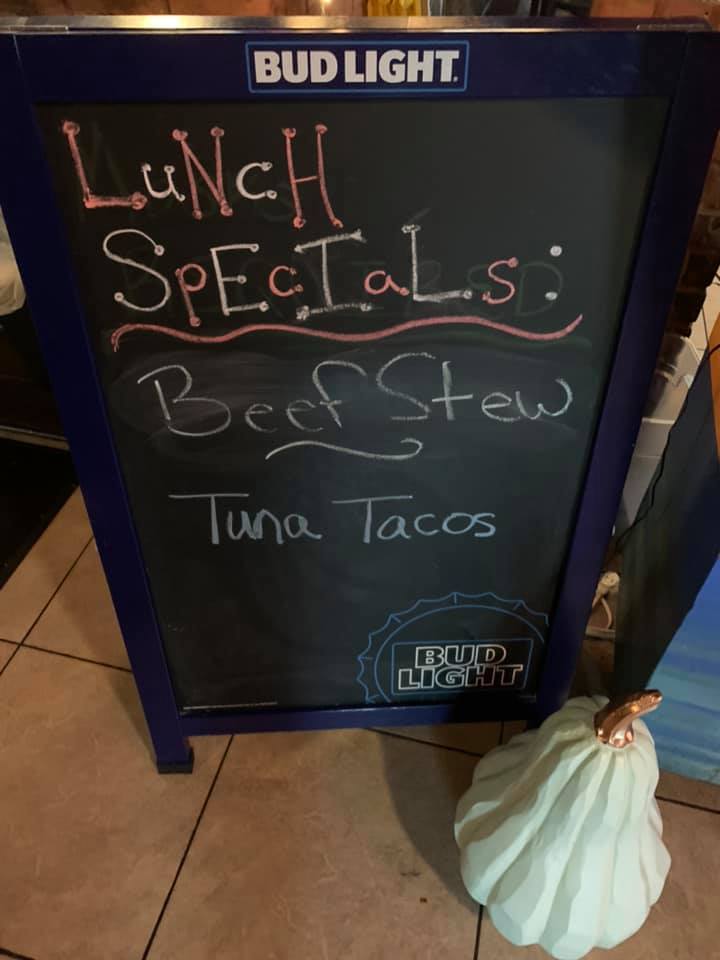 BUD LIGHT.
LuNcH
SpEcIaLs:
Beef Stew
Tuna Tacos
BUD
LIGHT